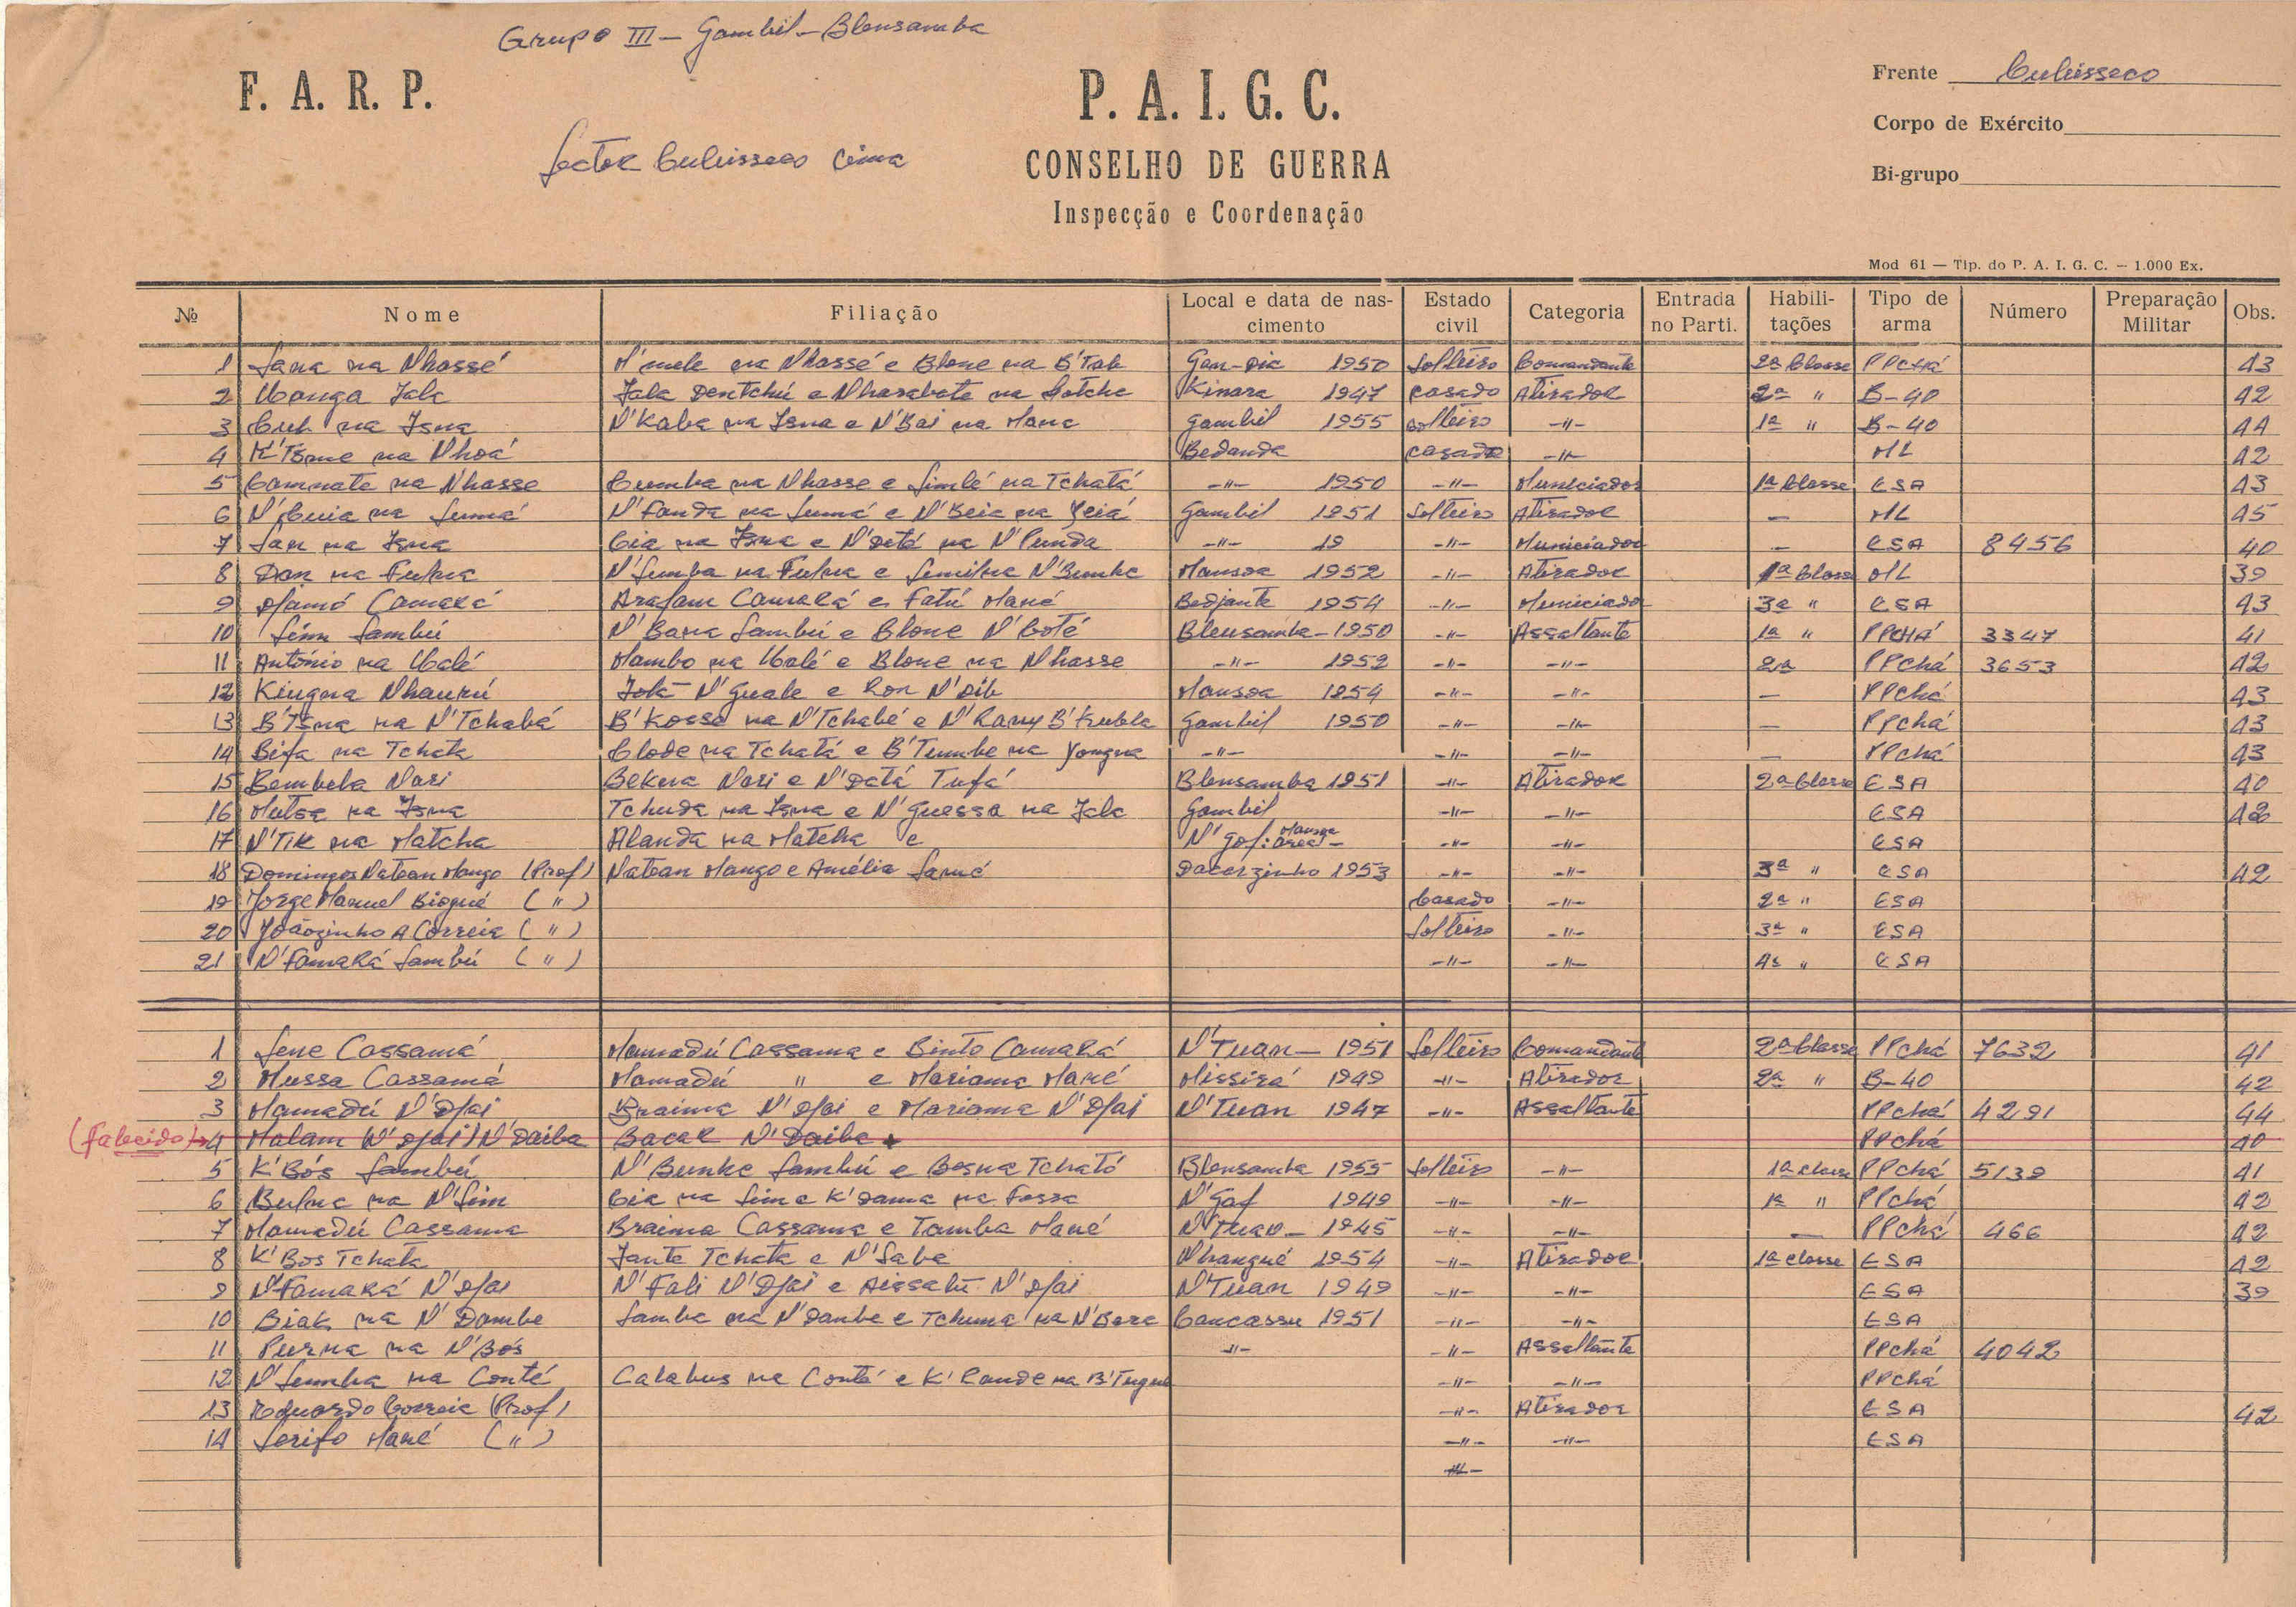 Grupo III - Gambil - Blensamba
F. A. R. P.
P. A. I. G. C.
Frente
Sector cima
CONSELHO DE GUERRA
Corpo de Exército
Bi-grupo
Inspecção e Coordenação
Mod 61 — Tip. do P. A. I. G. C. — 1.000 Ex.
№ Nome Filiação Local e data de nascimento Estado civil Categoria Entrada no Parti. Habilitações Tipo de arma Número Preparação Militar Obs.
1 Sana na Nhassé M'mele na Nhassé e Blone na B'Tab Gan-Dia 1950 Solteiro Comandante 2ª Classe PPCHÁ 43
2 Ubanga Jala Jala Dentchú e Nharabote na Kinara 1947 casado Atirador 2ª " B-40 42
3 na Isna N'Kaba na Isna e N'Bai na Mana Gambil 1955 solteiro -"- 1ª " B-40 44
4 K'Tsme na Nhoá Bedanda casado -"- ML 42
5 Camnate na Nhasse Cumba na Nhasse e Simlé na Tchatá -"- 1950 -"- Municiador 1ª Classe ESA 43
6 na Sumá N'Fanda na Sumá e N'Beia na Yeiá Gambil 1951 Solteiro Atirador - ML 45
7 San na Isna Cia na Isna e N'Deté na N'Punda -"- 19 -"- Municiador - ESA 8456 40
8 Dan na Fulna N'Sumba na Fulna e N'Bunhe Mansoa 1952 -"- Atirador 1ª Classe ML 39
9 Mamó Camará Arafam Camará e Fatú Mané Bedjante 1954 -"- Municiador 3ª " ESA 43
10 Sambú N'Bana Sambú e Blone N'Boté Blensamba - 1950 -"- Assaltante 1ª " PPCHÁ 3347 41
11 António na Ubalé Mambo na Ubalé e Blone na Nhasse -"- 1952 -"- -"- 2ª PPchá 3653 42
12 Kingna Nhaurú N'Guale e Ron N'Dib Mansoa 1954 -"- -"- - PPchá 43
13 B'Tsna na N'Tchabá B'Kosse na N'Tchabé e B'Kubla Gambil 1950 -"- -"- - PPchá 43
14 Bifa na Tchata Clode na Tchatá e B'Tumbe na Yongna -"- -"- -"- - PPchá 43
15 Bembela Nari Bekna Nari e N'Datá Tufá Blensamba 1951 -"- Atirador 2ª Classe ESA 40
16 Mutsa na Isna Tchuda na Isna e N'Guessa na Jala Gambil -"- -"- ESA
17 N'Tik na Matcha Alanda na Matcha e N'Gof: Mansoa -"- -"- ESA
18 Domingos Natean Mango (Prof) Natean Mango e Amélia Samé Dacerzinho 1953 -"- -"- 3ª " ESA 42
19 Jorge Manuel Biogué ( " ) Casado -"- 2ª " ESA
20 Joãozinho A Correia ( " ) Solteiro -"- 3ª " ESA
21 N'Famará Sambú ( " ) -"- -"- 4ª " ESA
1 Sene Cassamá Mamadú Cassama e Binto Camará N'Tuan - 1951 Solteiro Comandante 2ª Classe PPchá 7632 41
2 Mussa Cassamá Mamadú " e Mariama Mané Missirá 1949 -"- Atirador 2ª " B-40 42
3 Mamadú N'Djai Braima N'Djai e Mariama N'Djai N'Tuan 1947 -"- Assaltante PPchá 4291 44
(Falecido) 4 Malam (N'Djai) N'Daiba Bacar N'Daiba PPchá 40
5 K'Bós Sambú N'Bunhe Sambú e Bosna Tcható Blensamba 1955 Solteiro -"- 1ª classe PPchá 5139 41
6 Bulna na N'Sim Cia na Sim e K'Dama na Fassa N'Gaf 1949 -"- -"- 1ª " PPchá 42
7 Mamadú Cassama Braima Cassama e Tamba Mané N'Tuan - 1945 -"- -"- - PPchá 466 42
8 K'Bos Tchata Jante Tchata e N'Saba Nhangué 1954 -"- Atirador 1ª classe ESA 42
9 N'Famará N'Djai N'Fali N'Djai e Aissatú N'Djai N'Tuan 1949 -"- -"- ESA 39
10 Biak na N'Dambe Samba na N'Danbe e Tchuma na N'Bara Cancassu 1951 -"- -"- ESA
11 Purna na N'Bós -"- -"- Assaltante PPchá 4042
12 N'Sumba na Conté Calabus na Conté e K'Rande na -"- -"- PPchá
13 Eduardo Correia (Prof) -"- Atirador ESA 42
14 Serifo Mané ( " ) -"- -"- ESA
-"-